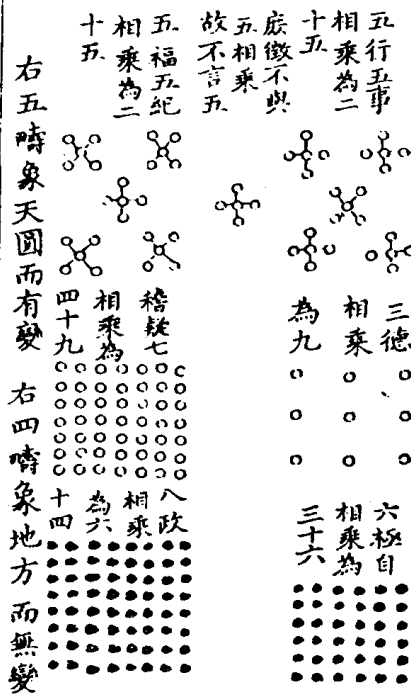 五行五事
相乘為二
十五
庶徵不與
五相乘
故不言五
五福五紀
相乘為二
十五
三德
相乘
為九
稽疑七
相乘為
四十九
六極自
相乘為
三十六
八政
相乘
為六
十四
右五疇象天圓而有變 右四疇象地方而無變